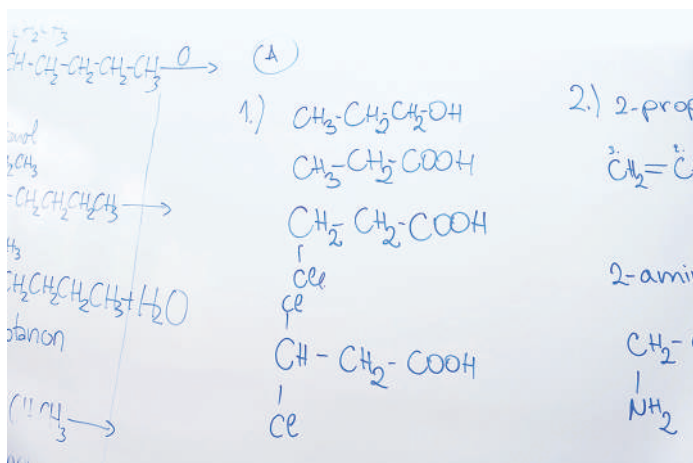 CH-CH₂-CH₂-CH₂-CH₃ —O→
CH₂CH₂CH₂CH₃ →
CH₂CH₂CH₂CH₃ + H₂O
CH₃ →
A
1.) CH₃-CH₂-CH₂-OH
CH₃-CH₂-COOH
CH₂-CH₂-COOH
Cl
Cl
CH-CH₂-COOH
Cl
2.) 2-prop
3. 2.
CH₂=C
2-amin
CH₂-
NH₂